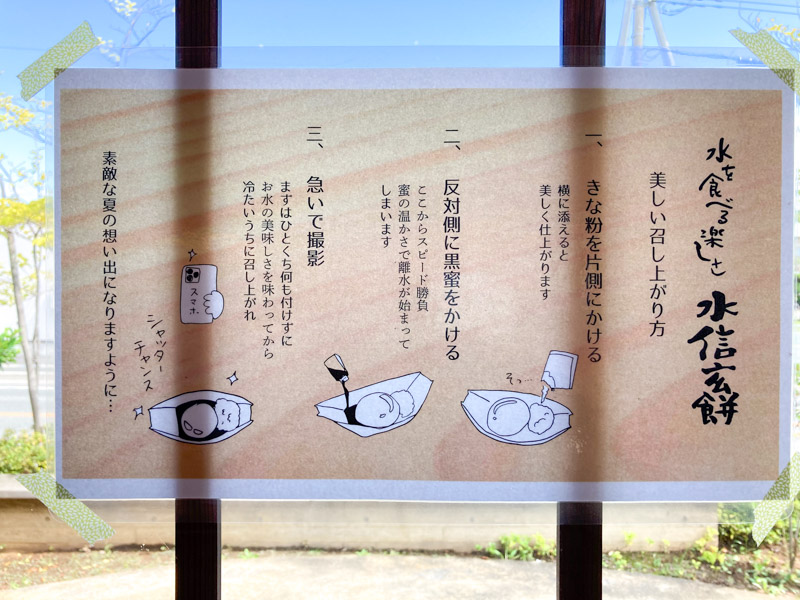 水を食べる楽しさ 水信玄餅
美しい召し上がり方
一、 きな粉を片側にかける
横に添えると
美しく仕上がります
そっ…
二、 反対側に黒蜜をかける
ここからスピード勝負
蜜の温かさで離水が始まって
しまいます
三、 急いで撮影
まずはひとくち何も付けずに
お水の美味しさを味わってから
冷たいうちに召し上がれ
スマホ
シャッター
チャンス
素敵な夏の想い出になりますように…